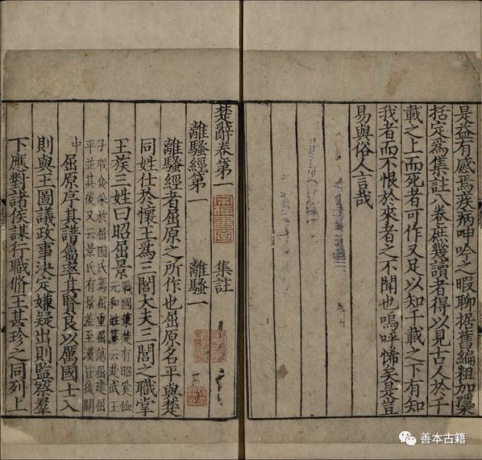 是益有感焉疾病呻吟之暇聊據舊編粗加檃
括定爲集註八卷庶幾讀者得以見古人於千
載之上而死者可作又足以知千載之下有知
我者而不恨於來者之不聞也嗚呼悕矣是豈
易與俗人言哉
楚辭卷第一
離騷經第一 離騷一 集註
離騷經者屈原之所作也屈原名平與楚
同姓仕於懷王爲三閭大夫三閭之職掌
王族三姓曰昭屈景
屈原序其譜屬率其賢良以厲國士入
則與王圖議政事決定嫌疑出則監察羣
下應對諸侯謀行職脩王甚珍之同列上
善本古籍